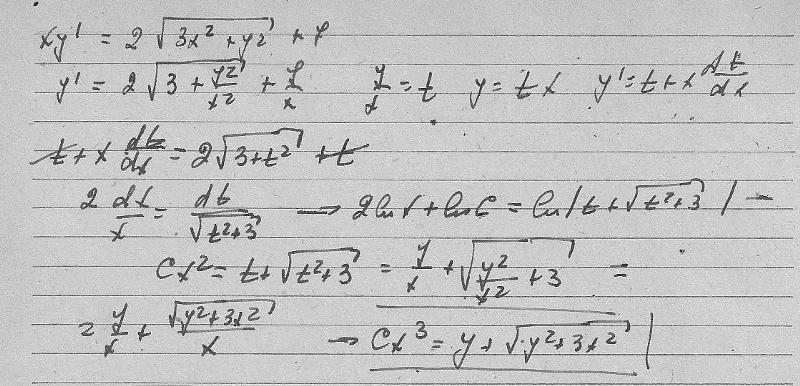 xy' = 2√(3x² + y²) + y
y' = 2√(3 + y²/x²) + y/x    y/x = t    y = tx    y' = t + x dt/dx
t + x dt/dx = 2√(3+t²) + t
2 dx/x = dt/√(t²+3) → 2ln x + ln C = ln|t + √(t²+3)| –
Cx² = t + √(t²+3) = y/x + √(y²/x² + 3) =
= y/x + √(y²+3x²)/x → Cx³ = y + √(y²+3x²) |